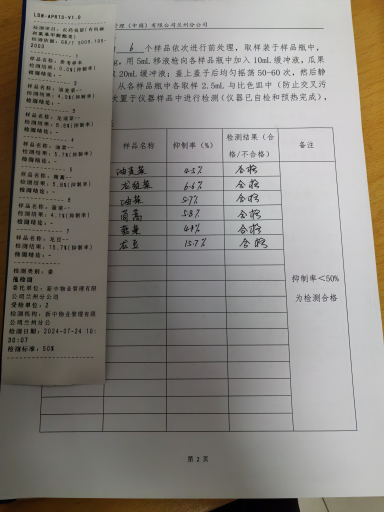 LDW-NP810-V1.0
检测项目：农药残留(有机磷
和氨基甲酸酯类)
检测依据：GB/T 5009.199-
2003
样品名称：参考样本
检测结果：0.0%(抑制率)
检测结论：-
样品名称：油麦菜--
检测结果：4.5%(抑制率)
检测结论：-
样品名称：龙须菜--
检测结果：6.6%(抑制率)
检测结论：-
样品名称：油菜--
检测结果：5.7%(抑制率)
检测结论：-
样品名称：茼蒿--
检测结果：5.8%(抑制率)
检测结论：-
样品名称：菠菜--
检测结果：4.1%(抑制率)
检测结论：-
7
样品名称：龙豆--
检测结果：15.7%(抑制率)
检测结论：-
检测类别：菜
抽检测
委托单位：新中物业管理有限
公司兰州分公司
受检单位：2
检测机构：新中物业管理有限
公司兰州分公
检测日期：2024-07-24 10:
30:07
检测标准：50%
管理（中国）有限公司兰州分公司
6 个样品依次进行前处理，取样装于样品瓶中，
g，用 5mL 移液枪向各样品瓶中加入 10mL 缓冲液，瓜果
20mL 缓冲液；盖上盖子后均匀摇荡 50-60 次，然后静
从各样品瓶中各取样 2.5mL 与比色皿中（防止交叉污
置于仪器样品中进行检测（仪器已自检和预热完成），
样品名称 抑制率（%） 检测结果（合格/不合格） 备注
油麦菜 4.5% 合格
龙须菜 6.6% 合格
油菜 5.7% 合格
茼蒿 5.8% 合格
菠菜 合格
龙豆 15.7% 合格
抑制率＜50%
为检测合格
第 2 页